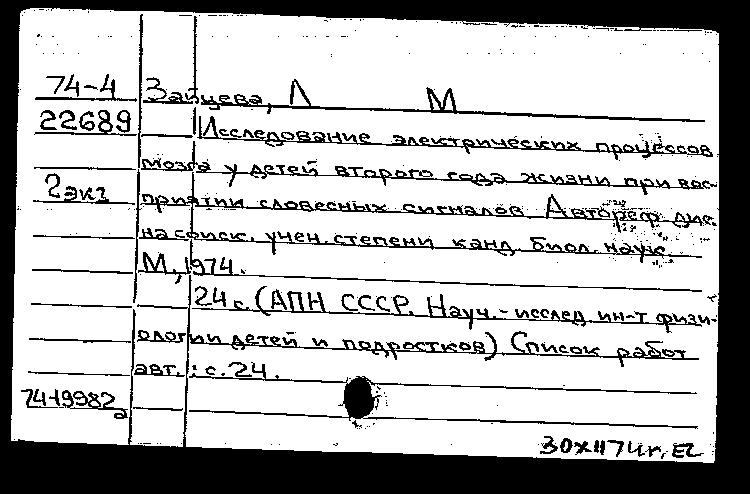 74-4 Зайцева, Л М
22689 Исследование электрических процессов
мозга у детей второго года жизни при вос-
2 экз приятии словесных сигналов. Автореф. дис.
на соиск. учен. степени канд. биол. наук.
М., 1974.
24 с. (АПН СССР. Науч.-исслед. ин-т физи-
ологии детей и подростков) Список работ
авт.: с. 24.
74-19982